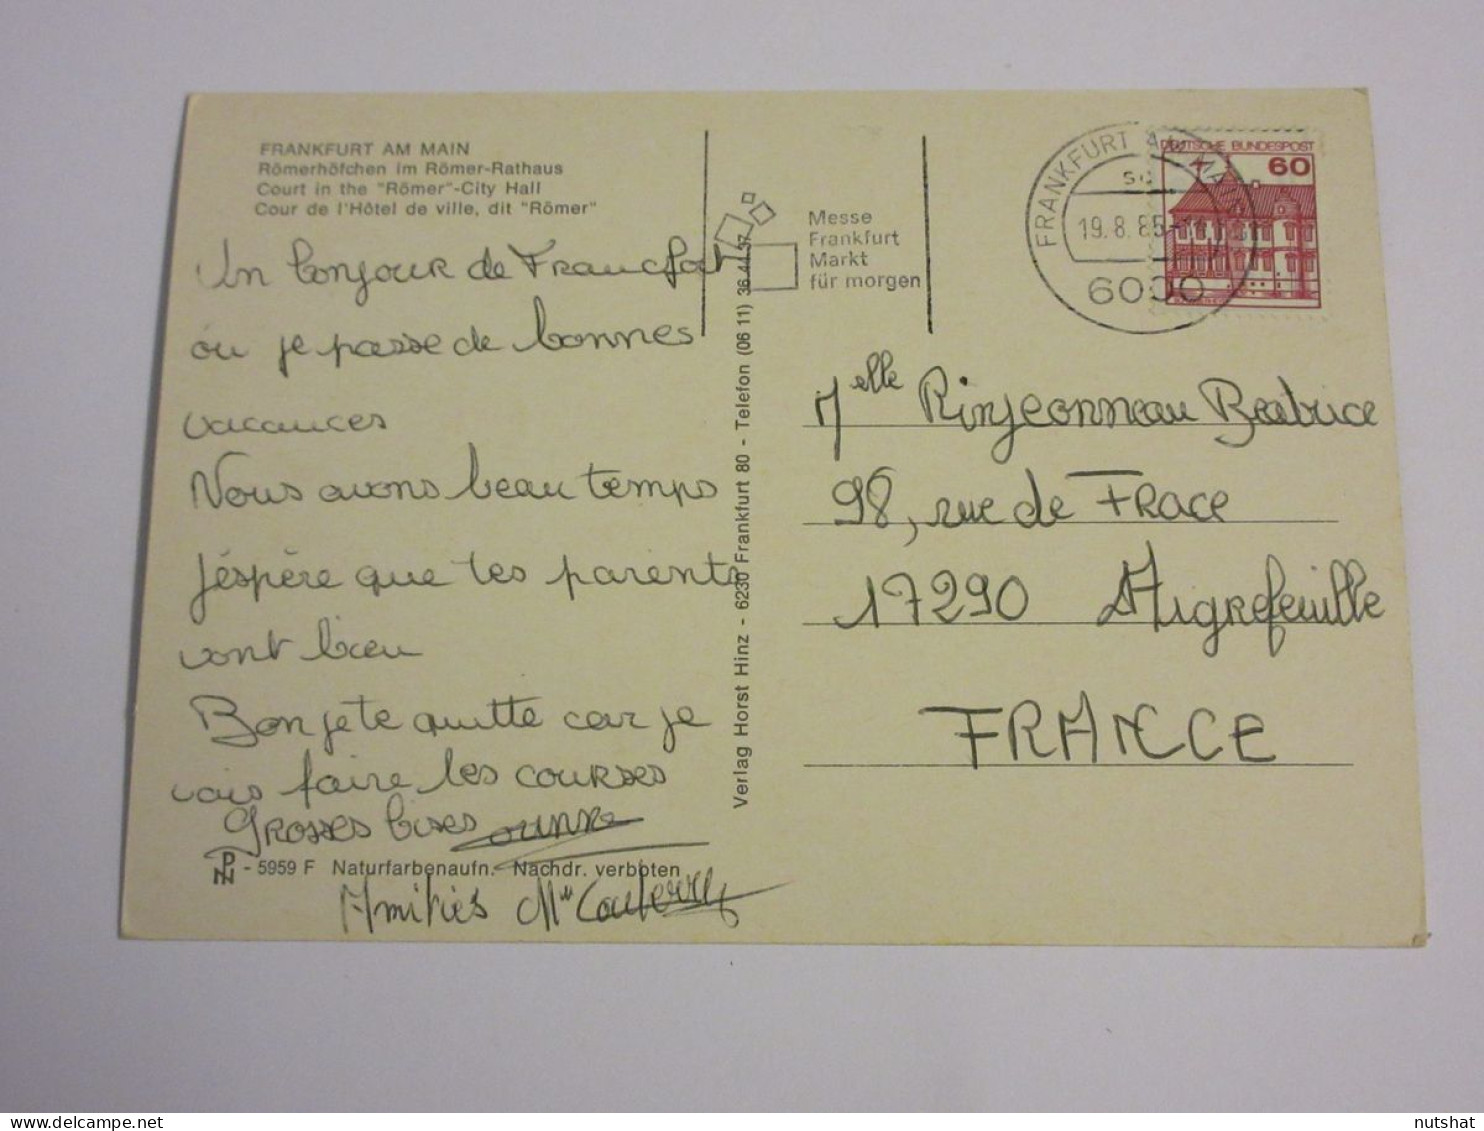 FRANKFURT AM MAIN
Römerhöfchen im Römer-Rathaus
Court in the "Römer"-City Hall
Cour de l'Hôtel de ville, dit "Römer"
Un bonjour de Francfort
ou je passe de bonnes
vacances
Nous avons beau temps
J'éspère que tes parents
vont bien
Bon je te quitte car je
vais faire les courses
Grosses bises
PHN - 5959 F Naturfarbenaufn. Nachdr. verboten
Amitiés
Verlag Horst Hinz - 6230 Frankfurt 80 - Telefon (06 11) 36 44 37
Messe
Frankfurt
Markt
für morgen
FRANKFURT AM MAIN
19.8.85
6000
DEUTSCHE BUNDESPOST
60
Melle Rinjeonneau Beatrice
98, rue de Frace
17290 Aigrefeuille
FRANCE
nutshat